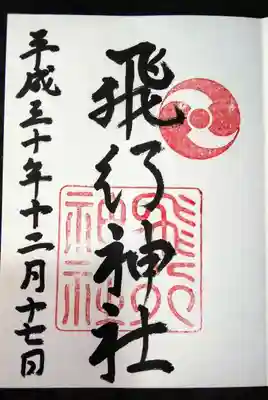 飛行神社
飛行神社
平成三十年十二月十七日